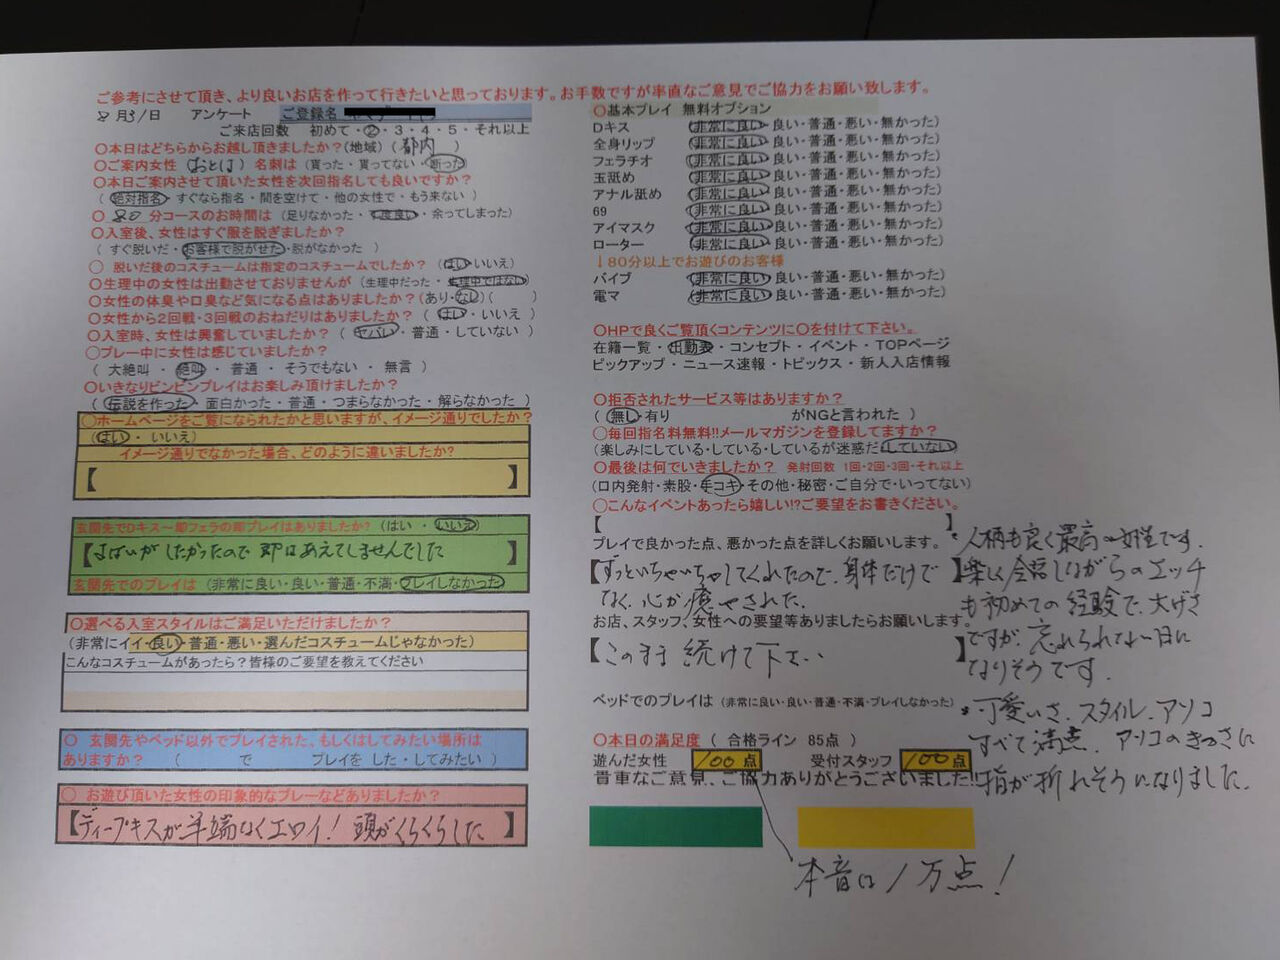 ご参考にさせて頂き、より良いお店を作って行きたいと思っております。お手数ですが率直なご意見でご協力をお願い致します。
8月31日 アンケート ご登録名
ご来店回数 初めて・②・3・4・5・それ以上
〇本日はどちらからお越し頂きましたか?(地域)( 都内 )
〇ご案内女性 (おとは) 名刺は (貰った・貰ってない・断った)
〇本日ご案内させて頂いた女性を次回指名しても良いですか?
( 絶対指名・すぐなら指名・間を空けて・他の女性で・もう来ない )
〇 80 分コースのお時間は (足りなかった・丁度良い・余ってしまった)
〇入室後、女性はすぐ服を脱ぎましたか?
( すぐ脱いだ・お客様で脱がせた・脱がなかった )
〇 脱いだ後のコスチュームは指定のコスチュームでしたか? (はい・いいえ)
〇生理中の女性は出勤させておりませんが (生理中だった・生理中ではない)
〇女性の体臭や口臭など気になる点はありましたか? (あり・なし)( )
〇女性から2回戦・3回戦のおねだりはありましたか? ( はい・いいえ )
〇入室時、女性は興奮していましたか? ( ヤバい・普通・していない )
〇プレー中に女性は感じていましたか?
( 大絶叫 ・ 絶叫 ・ 普通 ・ そうでもない ・ 無言 )
〇いきなりビンビンプレイはお楽しみ頂けましたか?
( 伝説を作った・面白かった・普通・つまらなかった・解らなかった )
〇ホームページをご覧になられたかと思いますが、イメージ通りでしたか?
(はい ・ いいえ)
イメージ通りでなかった場合、どのように違いましたか?
【 】
玄関先でDキス～即フェラの即プレイはありましたか? (はい ・ いいえ)
【 したかったので 即はあえてしませんでした 】
玄関先でのプレイは (非常に良い・良い・普通・不満・プレイしなかった)
〇選べる入室スタイルはご満足いただけましたか?
(非常にイイ・良い・普通・悪い・選んだコスチュームじゃなかった)
こんなコスチュームがあったら?皆様のご要望を教えてください
〇 玄関先やベッド以外でプレイされた、もしくはしてみたい場所は
ありますか? ( で プレイを した・してみたい )
〇 お遊び頂いた女性の印象的なプレーなどありましたか?
【ディープキスが半端なくエロイ! 頭がくらくらした】
〇基本プレイ 無料オプション
Dキス (非常に良い・良い・普通・悪い・無かった)
全身リップ (非常に良い・良い・普通・悪い・無かった)
フェラチオ (非常に良い・良い・普通・悪い・無かった)
玉舐め (非常に良い・良い・普通・悪い・無かった)
アナル舐め (非常に良い・良い・普通・悪い・無かった)
69 (非常に良い・良い・普通・悪い・無かった)
アイマスク (非常に良い・良い・普通・悪い・無かった)
ローター (非常に良い・良い・普通・悪い・無かった)
↓80分以上でお遊びのお客様
バイブ (非常に良い・良い・普通・悪い・無かった)
電マ (非常に良い・良い・普通・悪い・無かった)
〇HPで良くご覧頂くコンテンツに〇を付けて下さい。
在籍一覧・出勤表・コンセプト・イベント・TOPページ
ピックアップ・ニュース速報・トピックス・新人入店情報
〇拒否されたサービス等はありますか?
( 無し・有り がNGと言われた )
〇毎回指名料無料!!メールマガジンを登録してますか?
(楽しみにしている・している・しているが迷惑だ・していない)
〇最後は何でいきましたか? 発射回数 1回・2回・3回・それ以上
(口内発射・素股・手コキ・その他・秘密・ご自分で・いってない)
〇こんなイベントあったら嬉しい!?ご要望をお書きください。
【 】
プレイで良かった点、悪かった点を詳しくお願いします。
【ずっといちゃいちゃしてくれたので、身体だけで
なく、心が癒やされた。 】
お店、スタッフ、女性への要望等ありましたらお願いします。
【このまま続けて下さい 】
ベッドでのプレイは (非常に良い・良い・普通・不満・プレイしなかった)
〇本日の満足度 ( 合格ライン 85点 )
遊んだ女性 100点 受付スタッフ 100点
貴重なご意見、ご協力ありがとうございました!!
・人柄も良く最高の女性です。
楽しく会話しながらのエッチ
も初めての経験で、大げさ
ですが、忘れられない日に
なりそうです。
・可愛いさ、スタイル、アソコ
すべて満点、アソコのきつさに
指が折れそうになりました。
本音は1万点!